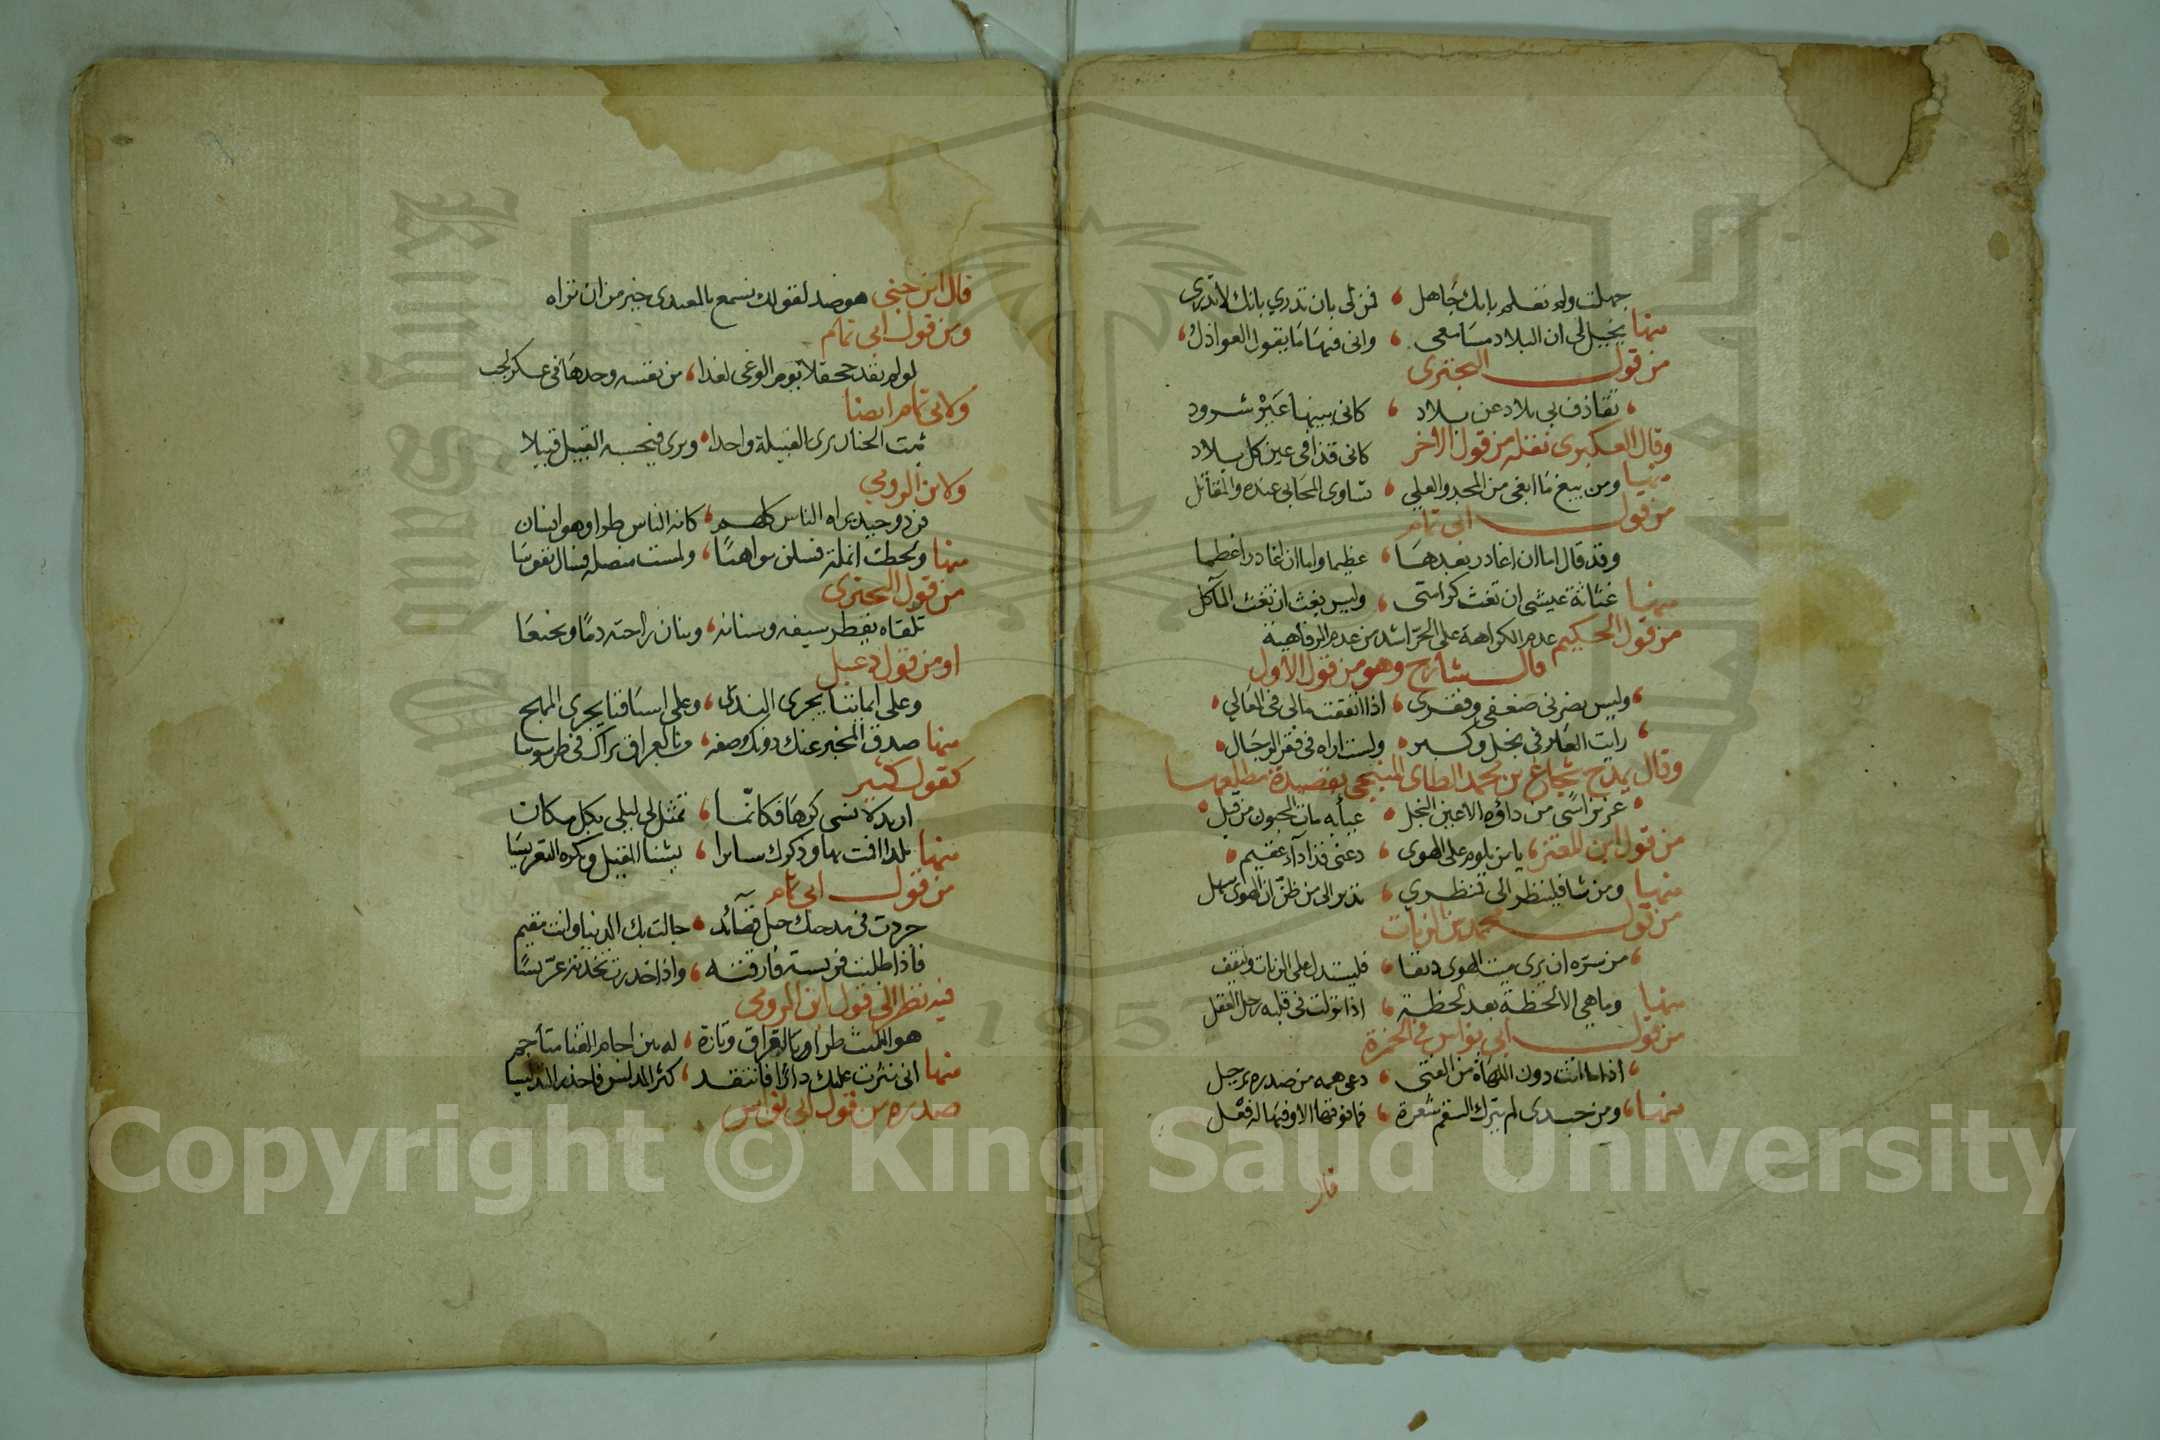 جهلت ولم تعلم بانك جاهل ، فمن لي بان تدري بانك لا تدري
منها يخيل لي ان البلاد مسامعي ، واني فيها ما يقول العواذل ،
من قول البحتري
، تقاذف بي بلاد عن بلاد ، كاني بينها عير شرود
وقال العكبري نقله من قول الاخر كاني قذا في عين كل بلاد
منها ومن يبغ ما ابغي من المجد والعلي ، تساوى المحابي عنده والمقاتل
من قول ابي تمام
وقد قال اما ان اغادر بعدها ، عظيما واما ان اغادر اعظما
منها غثاثة عيشي ان تغث كرامتي ، وليس بغث ان تغث المآكل
من قول الحكيم عدم الكراهة على الحر اشد من عدم الرفاهية
قال الشارح وهو من قول الاول
، وليس يضرني ضعفي وفقري ، اذا انفقت مالي في المعالي ،
، رايت العار في بخل وكبر ، ولست اراه في فقر الرجال ،
وقال يمدح شجاع بن محمد الطاي المنبجي بقصيدة مطلعها
، عزيز اسًى من داؤه الاعين النجل ، عياء به مات المحبون من قبل ،
من قول ابن المعتز ، يا من يلوم على الهوى ، دعني فذا داء عقيم ،
منها ومن شا فلينظر الي فمنظري ، نذير الى من ظن ان الهوى سهل
من قول محمد بن الزيات
، من سره ان يرى ميت الهوى دنفا ، فليستدل على الزيات وليقف
منها وما هي الا لحظة بعد لحظة ، اذا نزلت في قلبه رحل العقل
من قول ابي نواس في الخمرة
، اذا ما اتت دون اللهاة من الفتى ، دعى همه من صدره برحيل
منها ، ومن جسدي لم يترك السقم شعرة ، فما فوقها الا وفيها له فعل
قال
قال ابن جني هو ضد لقولك تسمع بالمعيدي خير من ان تراه
ومن قول ابي تمام
لو لم يقد جحفلا يوم الوغى لغدا ، من نفسه وحدها في عسكر لجب
ولابي تمام ايضا
ثبت الجنان يرى القبيلة واحدا ، ويرى فيحسبه القبيل قبيلا
ولابن الرومي
فرد وحيد يراه الناس كلهم ، كانه الناس طرا وهو انسان
منها ولحظت انملة فسلن مواهبًا ، ولمست منصله فسال نفوسا
من قول البحتري
تلقاه يقطر سيفه وسنانه ، وبنان راحته دمًا ونجيعَا
او من قول دعبل
وعلى ايماننا يجرى الندى ، وعلى اسيافنا يجرى المهج
منها صدق المخبر عنك دونك وصفه ، من بالعراق يراك في طرسوسا
كقول كثير
اريد لانسى ذكرها فكانما ، تمثل لي ليلى بكل مكان
منها بلد اقمت به وذكرك سائرا ، يشنا المقيل ويكره التعريسا
من قول ابي تمام
جردت في مدحك حبل قصآئد ، جالت بك الدنيا وانت مقيم
فاذا طلبت فريسة فارقته ، واذا خدرت تخذته عرّيسًا
فيه نظر الى قول ابن الرومي
هو الليث طورا بالعراق وتارة ، له بين اجام القنا متأجم
منها اني نثرت عليك درًا فانتقد ، كثر المدلس فاحذر التدليسا
صدره من قول ابي نواس